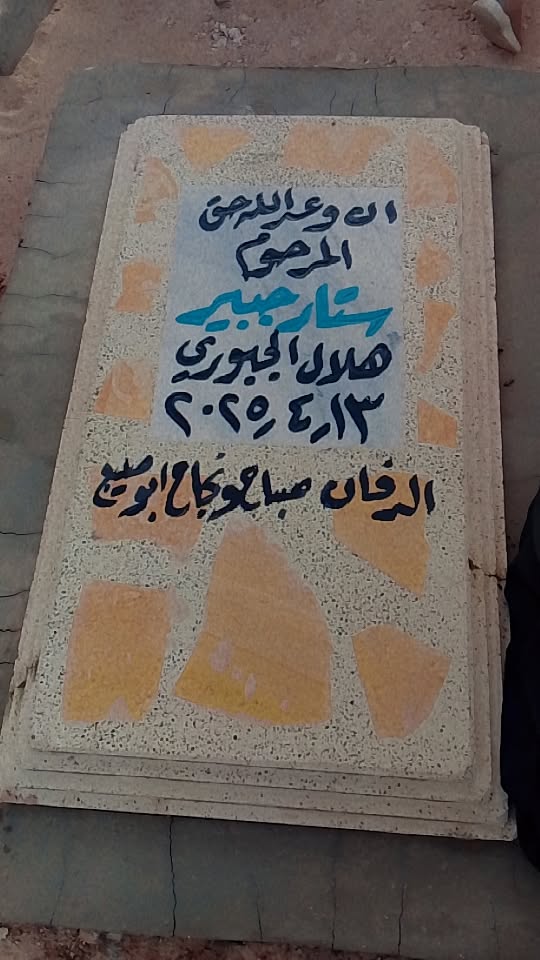 ان وعد الله حق
المرحوم
ستار جبير
هلال الجبوري
٢٠٢٥/٤/١٣
الدفان صباح ونجاح ابو صيبع